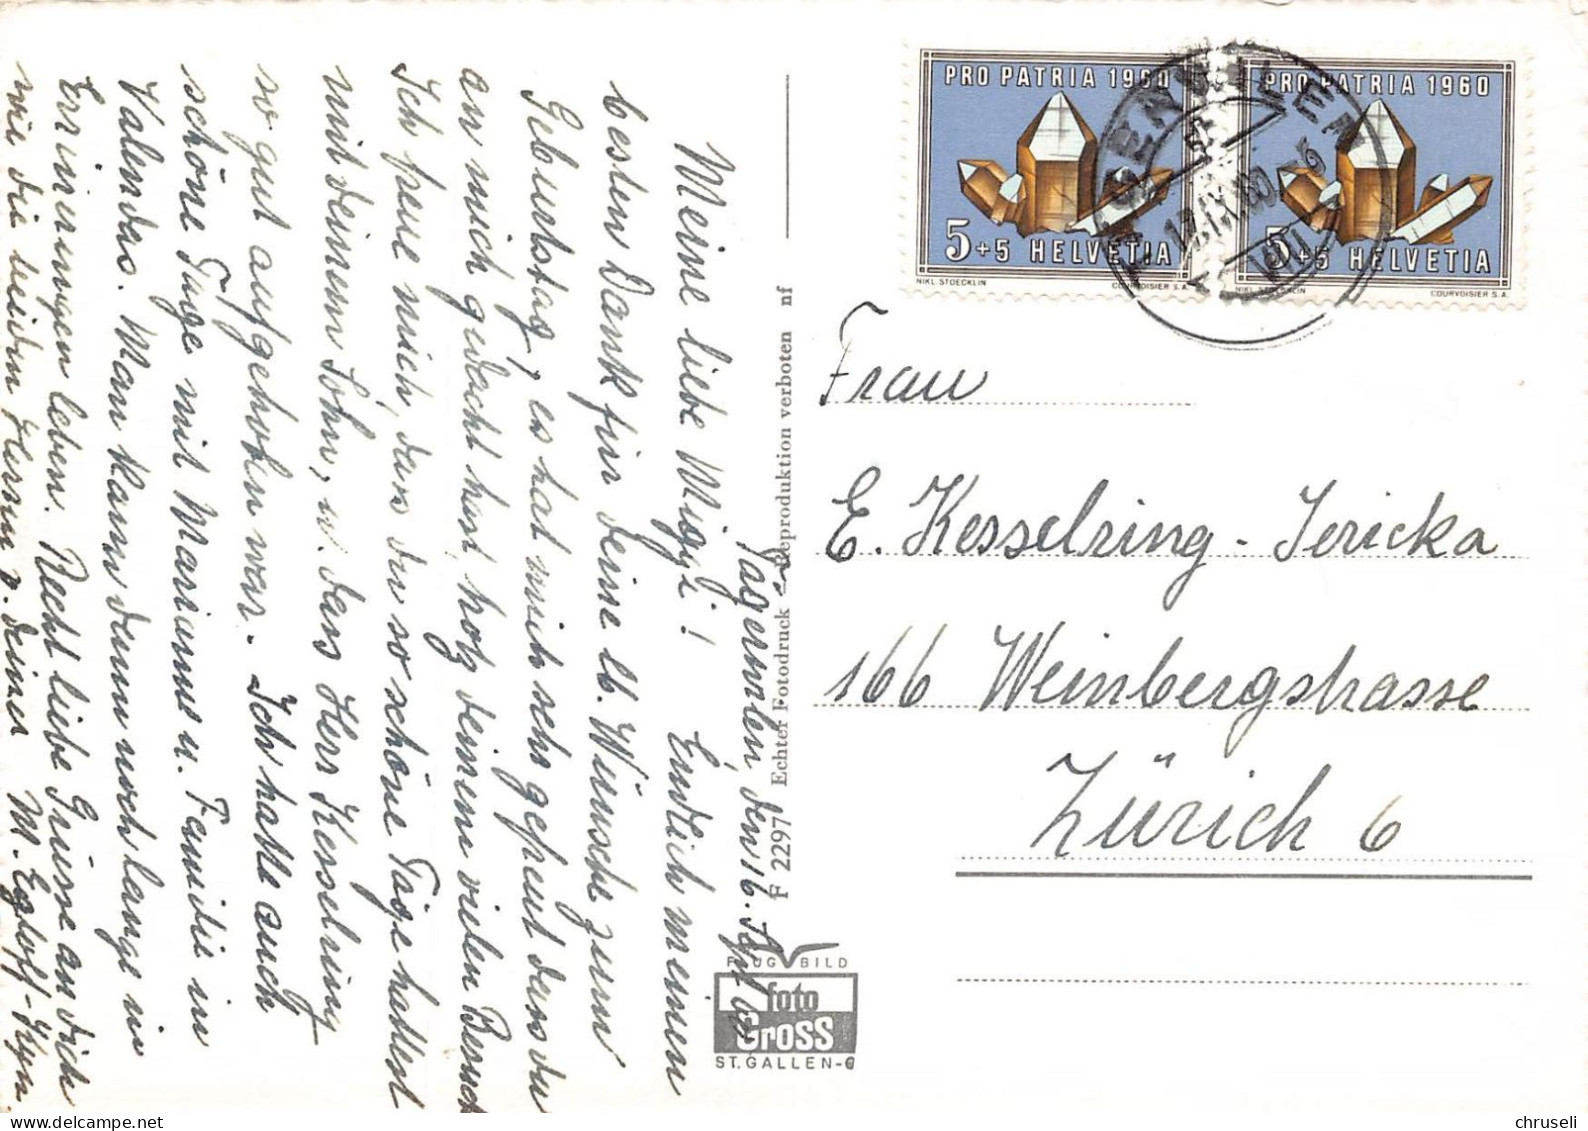 Tägerwilen, den 16. Sept. 60
Meine liebe Miggi! Endlich meinen
besten Dank für Deine lb. Wünsche zum
Geburtstag, es hat mich sehr gefreut dass du
an mich gedacht hast, trotz deinem vielen Besuch
Ich freue mich, dass du so schöne Tage hattest
mit deinem Sohn, u. dass Herr Kesselring
so gut aufgehoben war. Ich hatte auch
schöne Tage mit Marianne u. Familie in
Valendas. Man kann dann noch lange in
Erinnerungen leben. Recht liebe Grüsse an Dich
wie die lieben Herrn v. deiner M. Egloff-Kyn.
F 2297 Echter Fotodruck — Reproduktion verboten nf
FLUGBILD
foto
Gross
ST. GALLEN-6
PRO PATRIA 1960
5+5 HELVETIA
NIKL. STOECKLIN COURVOISIER S.A.
PRO PATRIA 1960
5+5 HELVETIA
NIKL. STOECKLIN COURVOISIER S.A.
Frau
E. Kesselring - Jericka
166 Weinbergstrasse
Zürich 6
chruseli